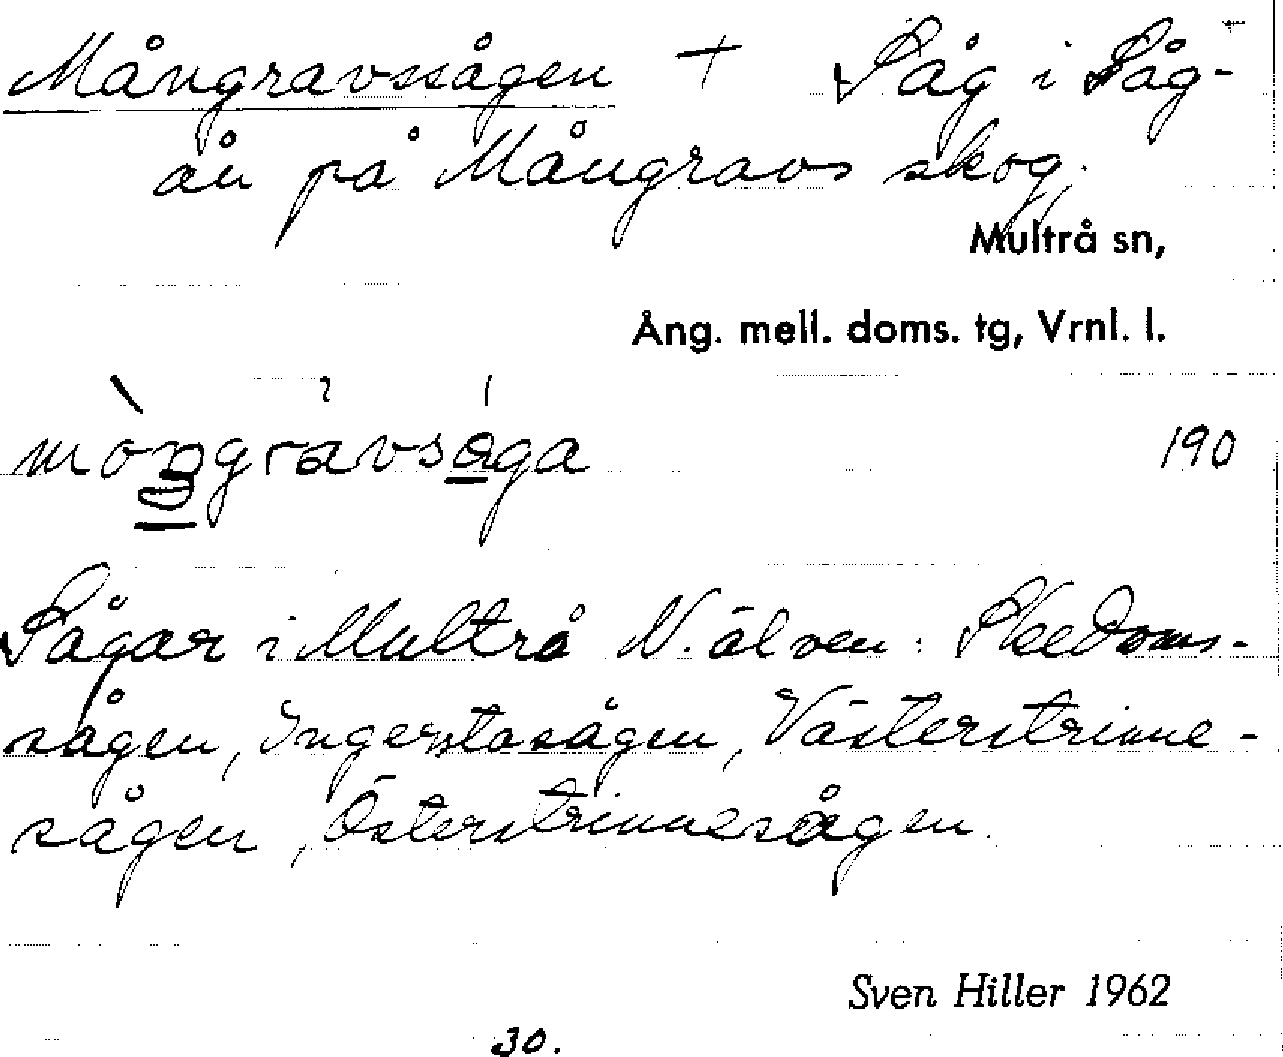 Mångravssågen + Såg i Såg-
ån på Mångravs skog.
Multrå sn,
Ång. mell. doms. tg, Vrnl. l.
mòŋgravsaga
190
Sågar i Multrå N. älven: Skedoms-
sågen, Ingerstasågen, Västerstrinne-
sågen, Österstrinnesågen.
Sven Hiller 1962
30.